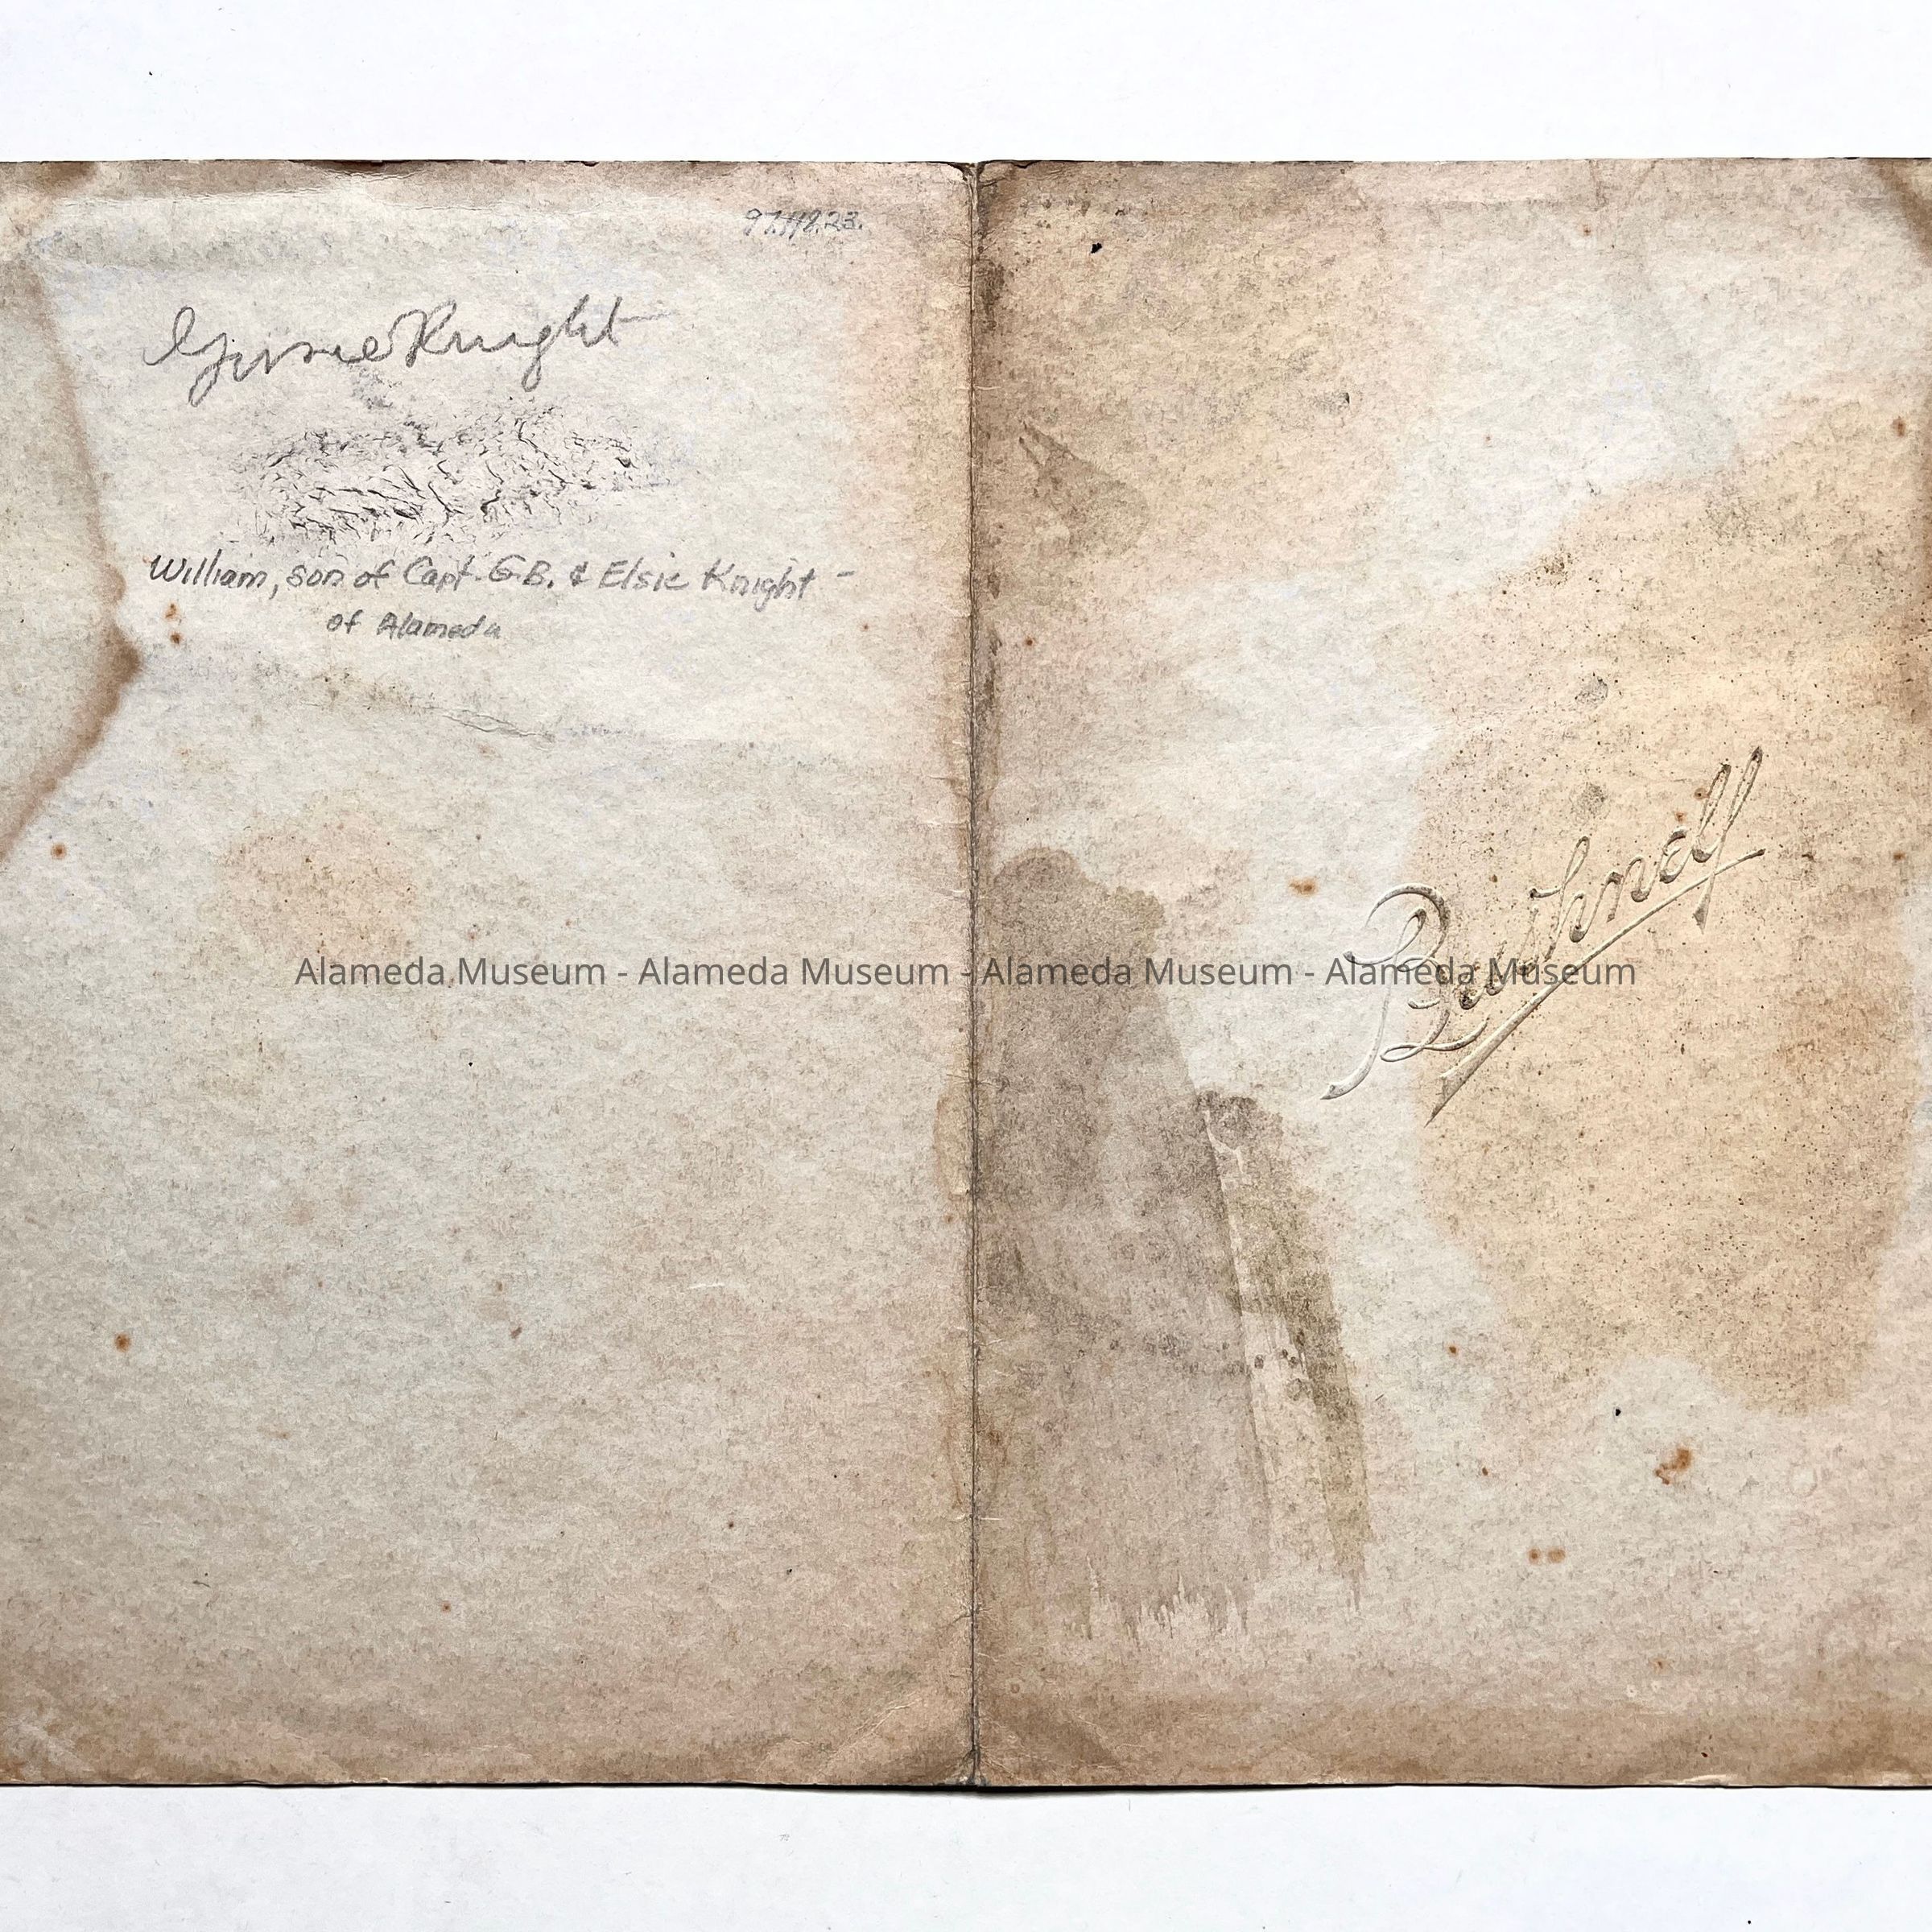 97.118.23.
Knight
William, son of Capt. G.B. & Elsie Knight -
of Alameda
Bushnell
Alameda Museum - Alameda Museum - Alameda Museum - Alameda Museum